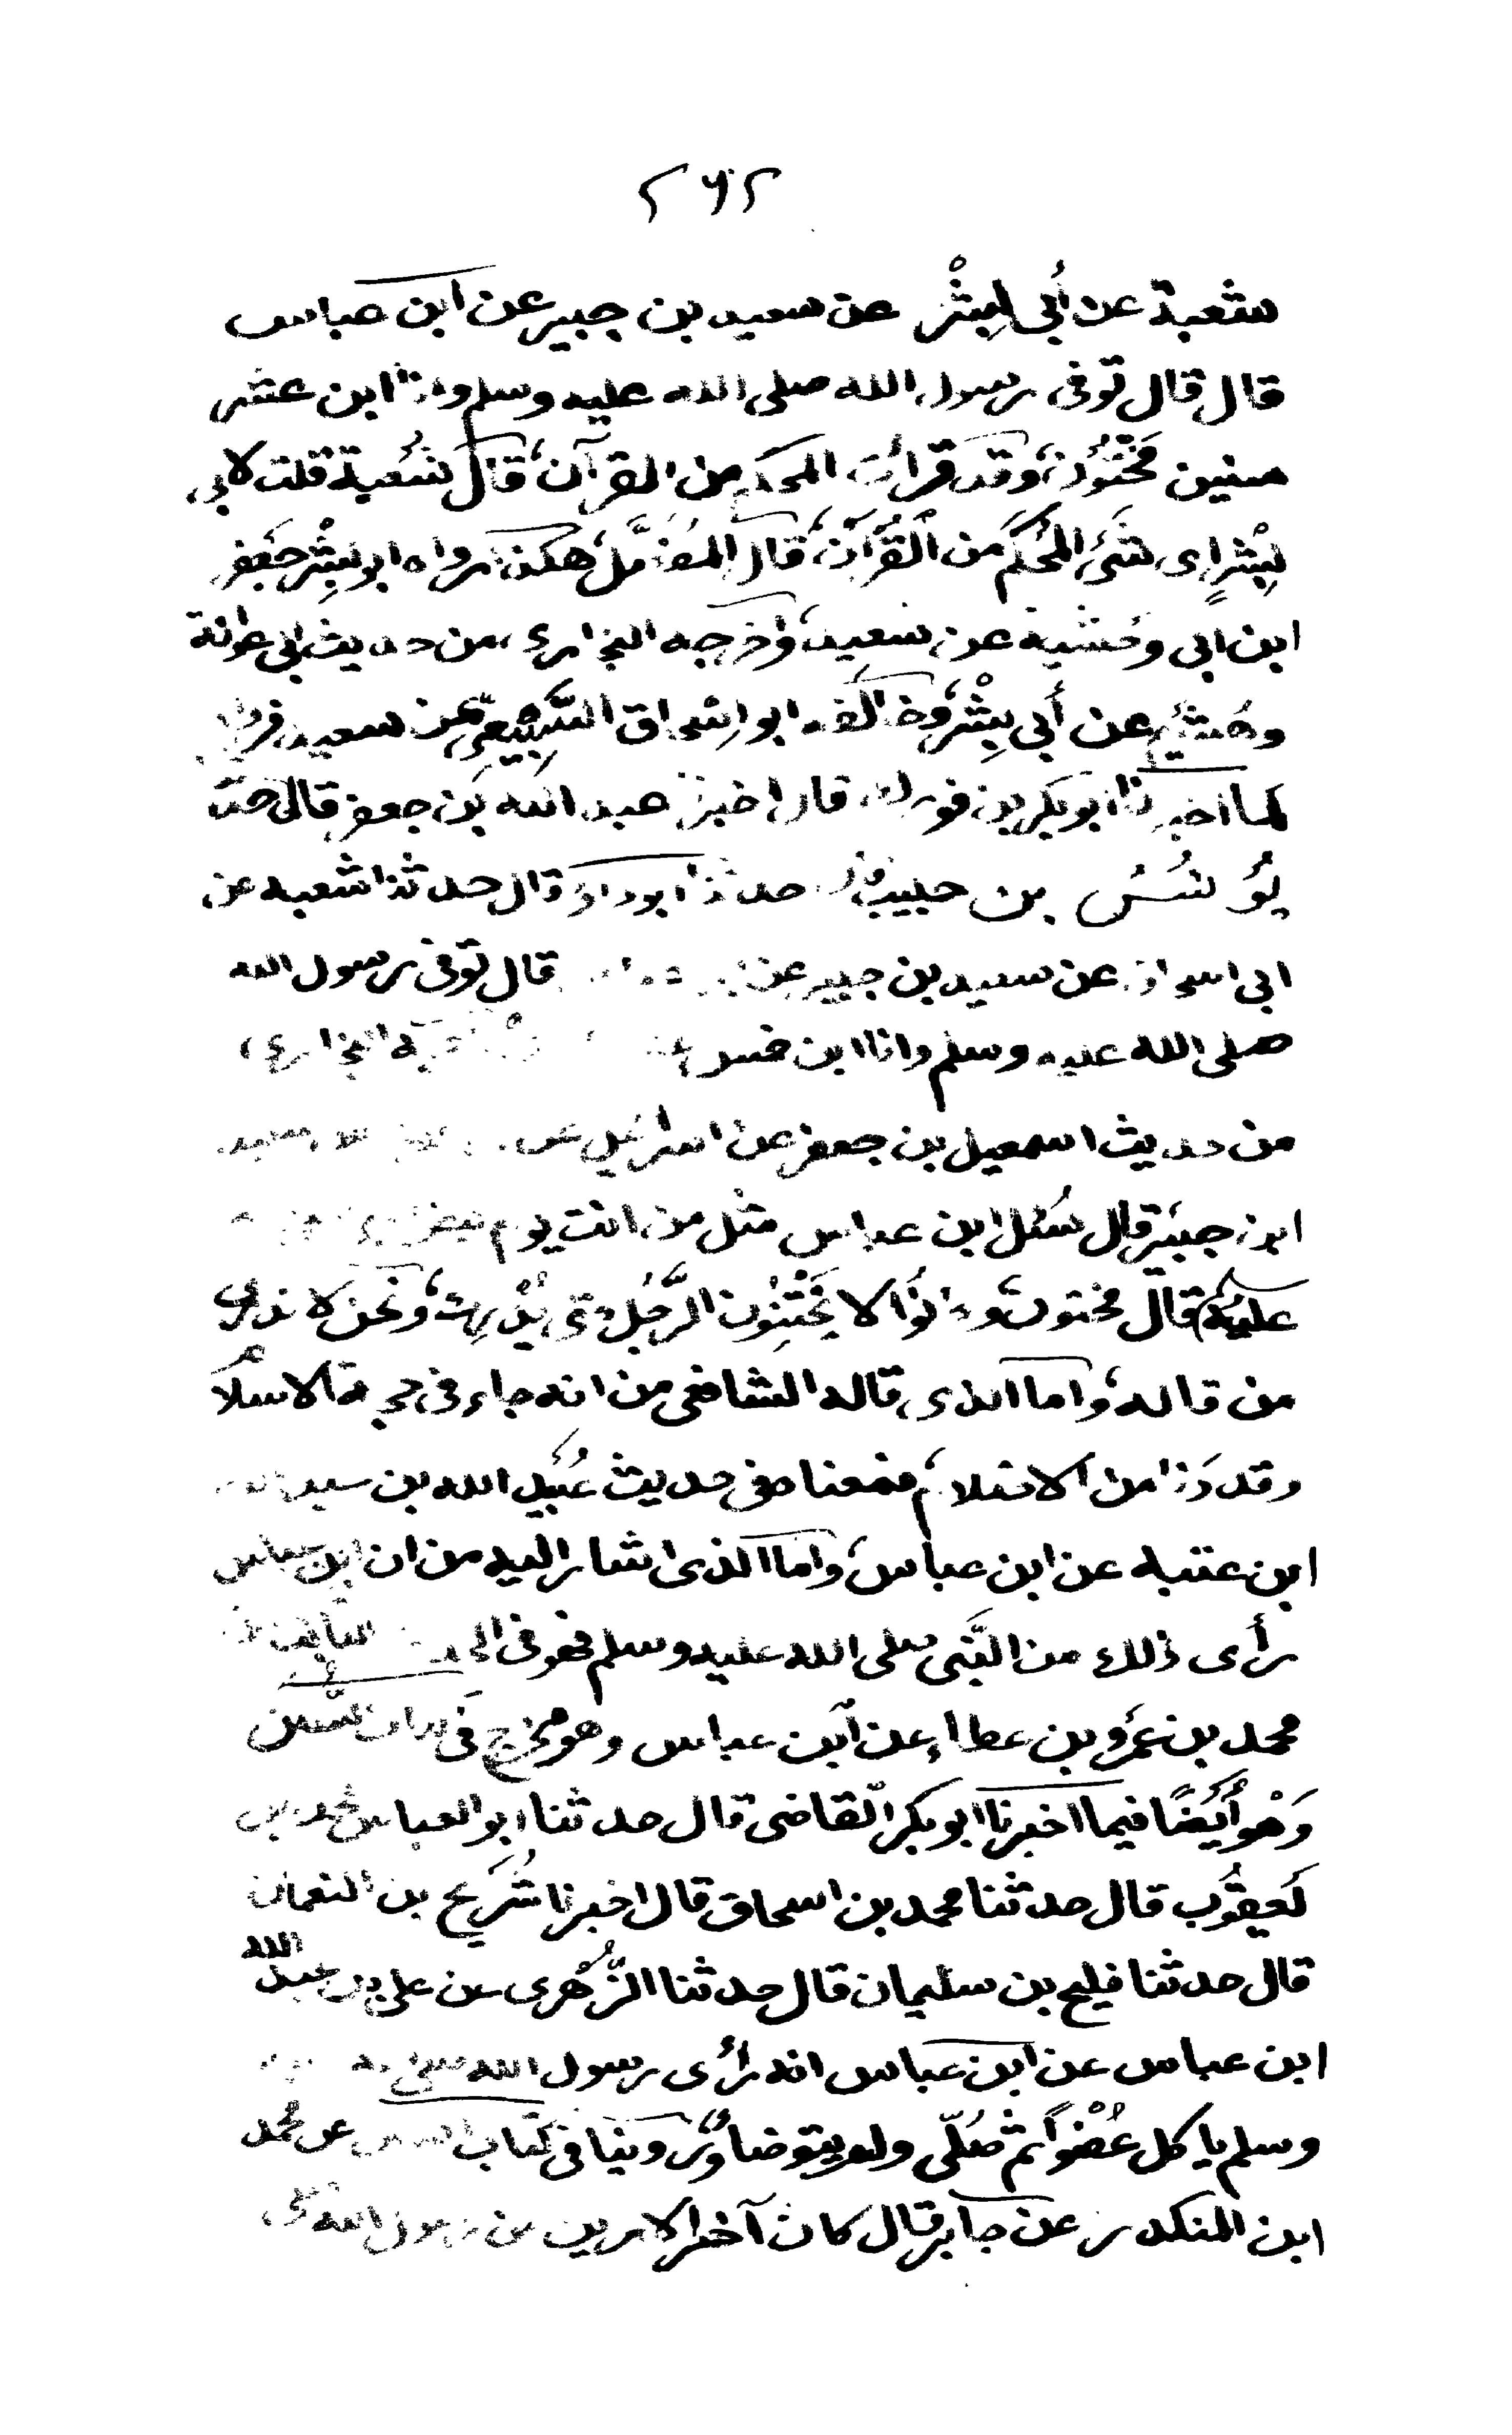 ٢٦٢
شعبة عن أبي بِشْر عن سعيد بن جبير عن ابن عباس
قال قال توفى رسول الله صلى الله عليه وسلم وانا ابن عشر
سنين مَخْتُون، وقد قرأت المحكم من القرآن، قال شُعبة قلت لابي
بِشْرٍ اى شَىء المُحكَم من القُرآن، قال المفَصَّل، هكذا رواه ابو بِشْر جَعفر
ابن ابى وحشية عن سَعيد، واخرجه البخارى، من حديث ابى عوانة
وهُشَيْم عن أبي بِشْر، وخالفه ابو اِسْحاق السَّبِيعِى عن سعيد
كما اخبرنا ابو بكر بن فورك قال اخبرنا عبد الله بن جعفر قال حدثنا
يُونُسُ بن حبيب قال حدثنا ابو داؤد قال حدثنا شعبه عن
ابى اسحاق عن سعيد بن جبير عن قال توفى رسول الله
صلى الله عليه وسلم وانا ابن خمس البخارى،
من حديث اسمعيل بن جعفر عن اسرائيل عن
ابن جبير قال سُئل ابن عباس مثل من انت يوم
عليه قال مختون، وكانُوا لا يَخْتِنُون الرَّجُل حتى يُدْرِك، ونحن لا ندرى
من قاله، واما الذى قاله الشافعى من انه جاء فى حجة الاسلام
وقد دَنا من الاحتلام، فمعناه فى حديث عُبَيد الله بن عبد الله
ابن عتبه عن ابن عباس، واما الذى اشار اليه من ان ابن عباس
رأى ذلك من النَّبى صلى الله عليه وسلم فهو فى الحديث الثابت عن
محمد بن عَمرو بن عطاء عن ابن عباس وهو مخرج فى كتاب السنن
وَهُو أيْضًا فيما اخبرنا ابو بكر القاضى قال حدثنا ابو العباس محمد بن
يعقُوب قال حدثنا محمد بن اسحاق قال اخبرنا شُرَيح بن النعمان
قال حدثنا فليح بن سليمان قال حدثنا الزُّهرى عن على بن عبد الله
ابن عباس عن ابن عباس انه رأى رسول الله صلى الله عليه
وسلم ياكل عُضْواً ثم صَلّى ولم يتوضأ وروينا فى كتاب السنن عن محمد
ابن المنكدر عن جابر قال كان آخر الامرين من رسول الله صلى